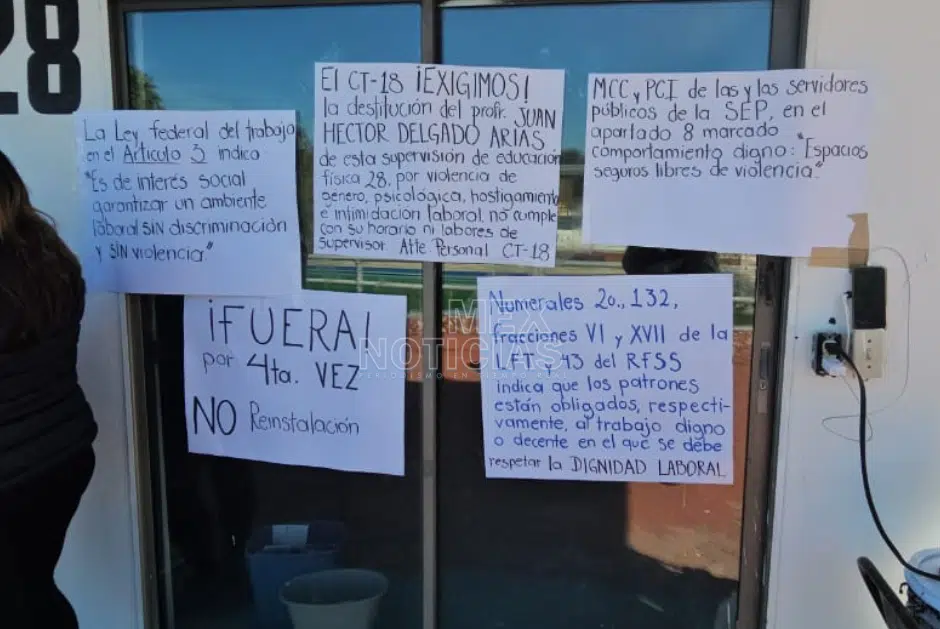 28
La Ley federal del trabajo
en el Artículo 3 indica
"Es de interés social
garantizar un ambiente
laboral SIN discriminación
y SIN violencia."
El CT-18 ¡EXIGIMOS!
la destitución del profr. JUAN
HECTOR DELGADO ARIAS
de esta supervisión de educación
física 28, por violencia de
género, psicológica, hostigamiento
e intimidación laboral, no cumple
con su horario ni labores de
supervisor. Atte. Personal CT-18
MCC y PCI de las y las servidores
públicos de la SEP, en el
apartado 8 marcado
comportamiento digno: "Espacios
seguros libres de violencia."
¡FUERA!
por 4ta. VEZ
NO Reinstalación
Numerales 2o., 132,
fracciones VI y XVII de la
LFT, 43 del RFSS
indica que los patrones
están obligados, respecti-
vamente, al trabajo digno
o decente en el que se debe
respetar la DIGNIDAD LABORAL
MEX
NOTICIAS
PERIODISMO EN TIEMPO REAL